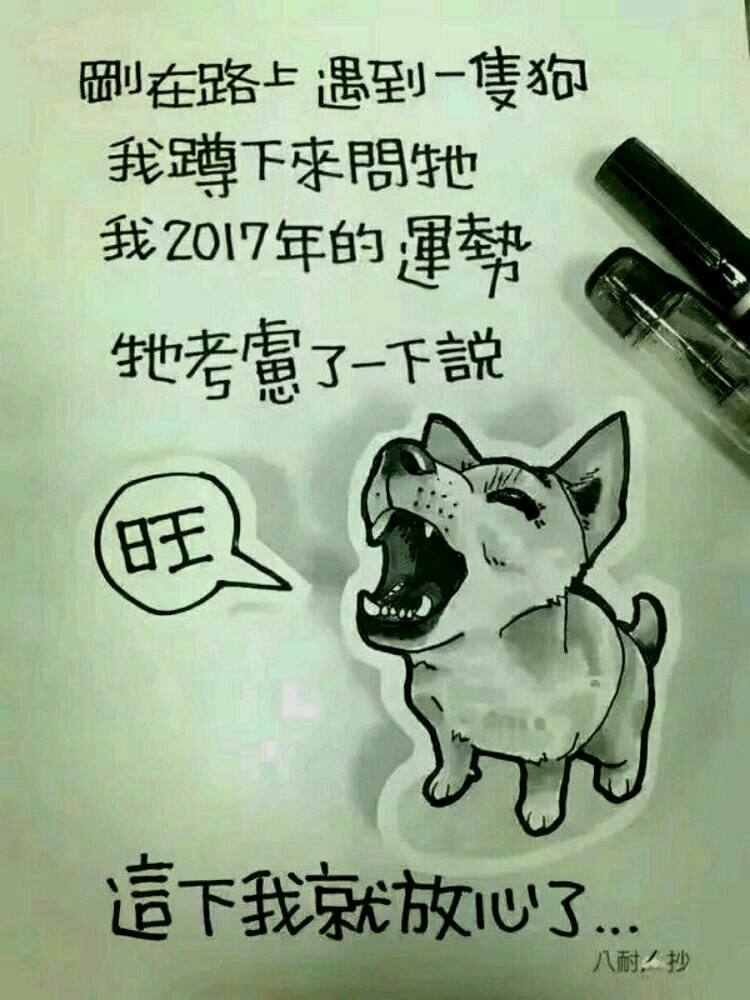 剛在路上遇到一隻狗
我蹲下來問牠
我2017年的運勢
牠考慮了一下說
旺
這下我就放心了...
八耐 抄